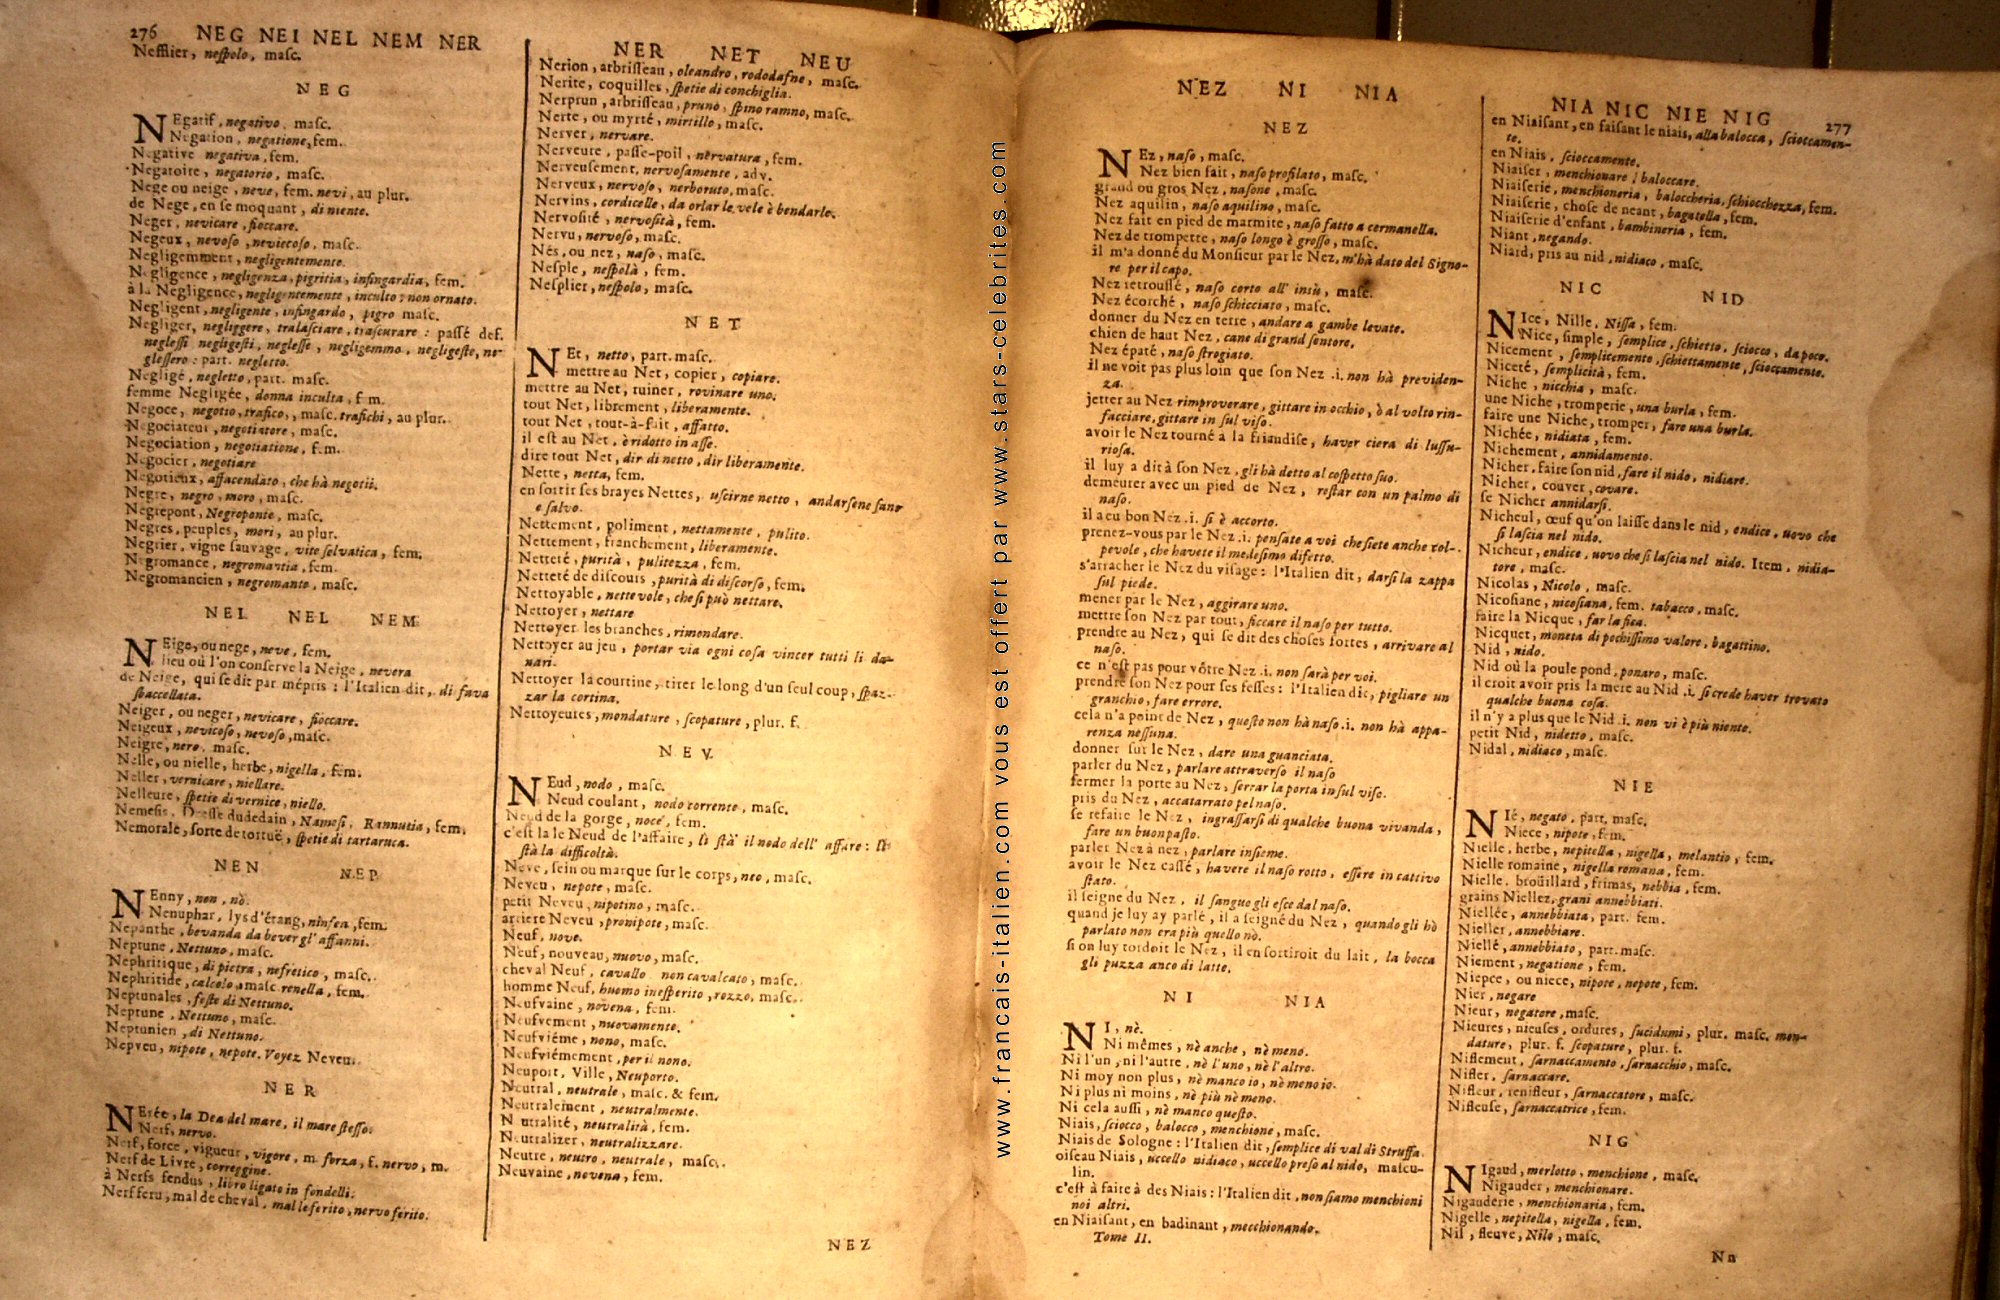 276 NEG NEI NEL NEM NER
Nefflier, nespolo, masc.
NEG
NEgatif, negativo, masc.
Negation, negatione, fem.
Negative negativa, fem.
Negatoire, negatorio, masc.
Nege ou neige, neve, fem. nevi, au plur.
de Nege, en se moquant, di niente.
Neger, nevicare, fioccare.
Negeux, nevoso, neviccoso, masc.
Negligemment, negligentemente.
Negligence, negligenza, pigritia, infingardia, fem.
à la Negligence, negligentemente, inculto, non ornato.
Negligent, negligente, infingardo, pigro masc.
Negliger, negliggere, tralasciare, trascurare : passé def.
neglessi negligesti, neglesse, negligemmo, negligeste, ne-
glessero : part. negletto.
Negligé, negletto, part. masc.
femme Negligée, donna inculta, f m.
Negoce, negotio, trafico, masc. trafichi, au plur.
Negociateur, negotiatore, masc.
Negociation, negotiatione, fem.
Negocier, negotiare
Negotieux, affacendato, che hà negotii.
Negre, negro, moro, masc.
Negrepont, Negroponte, masc.
Negres, peuples, mori, au plur.
Negrier, vigne sauvage, vite selvatica, fem.
Negromance, negromantia, fem.
Negromancien, negromante, masc.
NEI NEL NEM
NEige, ou nege, neve, fem.
lieu où l'on conserve la Neige, nevera
de Neige, qui se dit par mépris : l'Italien dit, di fava
sbaccellata.
Neiger, ou neger, nevicare, fioccare.
Neigeux, nevicoso, nevoso, masc.
Neigre, nero, masc.
Nelle, ou nielle, herbe, nigella, fem.
Neller, vernicare, niellare.
Nelleure, spetie di vernice, niello.
Nemesis, Deesse dudedain, Namesi, Rannutia, fem.
Nemorale, sorte de tortuë, spetie di tartaruca.
NEN NEP
NEnny, non, nò.
Nenuphar, lys d'étang, ninfea, fem.
Nepanthe, bevanda da bever gl' affanni.
Neptune, Nettuno, masc.
Nephritique, di pietra, nefretico, masc.
Nephritide, calcolo, masc renella, fem.
Neptunales, feste di Nettuno.
Neptune, Nettuno, masc.
Neptunien, di Nettuno.
Nepveu, nipote, nepote. Voyez Neveu.
NER
NErée, la Dea del mare, il mare stesso.
Nerf, nervo.
Nerf, force, vigueur, vigore, m. forza, f. nervo, m.
Nerf de Livre, correggine.
à Nerfs fendus, libro ligato in fondelli.
Nerf feru, mal de cheval, mal le ferito, nervo ferito.
NER NET NEU
Nerion, arbrisseau, oleandro, rododafne, masc.
Nerite, coquilles, spetie di conchiglia.
Nerprun, arbrisseau, pruno, spino ramno, masc.
Nerte, ou myrté, mirtillo, masc.
Nerver, nervare.
Nerveure, passe-poil, nervatura, fem.
Nerveusement, nervosamente, adv.
Nerveux, nervoso, nerboruto, masc.
Nervins, cordicelle, da orlar le vele è bendarle.
Nervosité, nervosità, fem.
Nervu, nervoso, masc.
Nés, ou nez, naso, masc.
Nesple, nespolà, fem.
Nesplier, nespolo, masc.
NET
NEt, netto, part. masc.
mettre au Net, copier, copiare.
mettre au Net, ruiner, rovinare uno.
tout Net, librement, liberamente.
tout Net, tout-à-fait, affatto.
il est au Net, è ridotto in asse.
dire tout Net, dir di netto, dir liberamente.
Nette, netta, fem.
en sortir ses brayes Nettes, uscirne netto, andarsene sano
e salvo.
Nettement, poliment, nettamente, pulito.
Nettement, franchement, liberamente.
Netteté, purità, pulitezza, fem.
Netteté de discours, purità di discorso, fem.
Nettoyable, nettevole, che si può nettare.
Nettoyer, nettare
Nettoyer les branches, rimondare.
Nettoyer au jeu, portar via ogni cosa vincer tutti li da-
nari.
Nettoyer la courtine, tirer le long d'un seul coup, spaz-
zar la cortina.
Nettoyeures, mondature, scopature, plur. f.
NEV
NEud, nodo, masc.
Neud coulant, nodo corrente, masc.
Neud de la gorge, noce, fem.
c'est la le Neud de l'affaire, lì stà il nodo dell' affare : lì
stà la difficoltà.
Neve, sein ou marque sur le corps, neo, masc.
Neveu, nepote, masc.
petit Neveu, nipotino, masc.
arriere Neveu, pronipote, masc.
Neuf, nove.
Neuf, nouveau, nuovo, masc.
cheval Neuf, cavallo non cavalcato, masc.
homme Neuf, huomo inesperito, rozzo, masc.
Neufvaine, novena, fem.
Neufvement, nuovamente.
Neufviéme, nono, masc.
Neufviémement, per il nono.
Neuport, Ville, Neuporto.
Neutral, neutrale, masc. & fem.
Neutralement, neutralmente.
Neutralité, neutralità, fem.
Neutralizer, neutralizzare.
Neutre, neutro, neutrale, masc.
Neuvaine, novena, fem.
NEZ
www.francais-italien.com vous est offert par www.stars-celebrites.com
NEZ NI NIA
NEZ
NEz, naso, masc.
Nez bien fait, naso profilato, masc.
grand ou gros Nez, nasone, masc.
Nez aquilin, naso aquilino, masc.
Nez fait en pied de marmite, naso fatto a cermanella.
Nez de trompette, naso longo è grosso, masc.
il m'a donné du Monsieur par le Nez, m'hà dato del Signo-
re per il capo.
Nez retroussé, naso corto all' insù, masc.
Nez écorché, naso schicciato, masc.
donner du Nez en terre, andare a gambe levate.
chien de haut Nez, cane di grand sentore.
Nez épaté, naso strogiato.
il ne voit pas plus loin que son Nez .i. non hà previden-
za.
jetter au Nez rimproverare, gittare in occhio, ò al volto rin-
facciare, gittare in sul viso.
avoir le Nez tourné a la friandise, haver ciera di lussu-
riosa.
il luy a dit à son Nez, gli hà detto al cospetto suo.
demeurer avec un pied de Nez, restar con un palmo di
naso.
il a eu bon Nez .i. si è accorto.
prenez-vous par le Nez .i. pensate a voi che siete anche col-
pevole, che havete il medesimo difetto.
s'arracher le Nez du visage : l'Italien dit, darsi la zappa
sul piede.
mener par le Nez, aggirare uno.
mettre son Nez par tout, ficcare il naso per tutto.
prendre au Nez, qui se dit des choses fortes, arrivare al
naso.
ce n'est pas pour vôtre Nez .i. non sarà per voi.
prendre son Nez pour ses fesses : l'Italien dit, pigliare un
granchio, fare errore.
cela n'a point de Nez, questo non hà naso .i. non hà appa-
renza nessuna.
donner sur le Nez, dare una guanciata.
parler du Nez, parlare attraverso il naso
fermer la porte au Nez, serrar la porta in sul viso.
pris du Nez, accatarrato pel naso.
se refaire le Nez, ingrassarsi di qualche buona vivanda,
fare un buon pasto.
parler Nez à nez, parlare insieme.
avoir le Nez cassé, havere il naso rotto, essere in cattivo
stato.
il seigne du Nez, il sangue gli esce dal naso.
quand je luy ay parlé, il a seigné du Nez, quando gli hò
parlato non era più quello nò.
si on luy tordoit le Nez, il en sortiroit du lait, la bocca
gli puzza anco di latte.
NI NIA
NI, nè.
Ni mêmes, nè anche, nè meno.
Ni l'un, ni l'autre, nè l'uno, nè l'altro.
Ni moy non plus, nè manco io, nè meno io.
Ni plus ni moins, nè più nè meno.
Ni cela aussi, nè manco questo.
Niais, sciocco, balocco, menchione, masc.
Niais de Sologne : l'Italien dit, semplice di val di Struffa.
oiseau Niais, uccello nidiaco, uccello preso al nido, mascu-
lin.
c'est à faire à des Niais : l'Italien dit, non siamo menchioni
noi altri.
en Niaisant, en badinant, mecchionando.
Tome II.
NIA NIC NIE NIG 277
en Niaisant, en faisant le niais, alla balocca, scioccamen-
te.
en Niais, scioccamente.
Niaiser, menchionare, baloccare.
Niaiserie, menchioneria, baloccheria, schiocchezza, fem.
Niaiserie, chose de neant, bagatella, fem.
Niaiserie d'enfant, bambineria, fem.
Niant, negando.
Niard, pris au nid, nidiaco, masc.
NIC NID
NIce, Nille, Nissa, fem.
Nice, simple, semplice, schietto, sciocco, dapoco.
Nicement, semplicemento, schiettamente, scioccamente.
Niceté, semplicità, fem.
Niche, nicchia, masc.
une Niche, tromperie, una burla, fem.
faire une Niche, tromper, fare una burla.
Nichée, nidiata, fem.
Nichement, annidamento.
Nicher, faire son nid, fare il nido, nidiare.
Nicher, couver, covare.
se Nicher annidarsi.
Nicheul, œuf qu'on laisse dans le nid, endice, uovo che
si lascia nel nido.
Nicheur, endice, uovo che si lascia nel nido. Item, nidia-
tore, masc.
Nicolas, Nicolo, masc.
Nicosiane, nicosiana, fem. tabacco, masc.
faire la Nicque, far la fica.
Nicquet, moneta di pochissimo valore, bagattino.
Nid, nido.
Nid où la poule pond, ponaro, masc.
il croit avoir pris la mere au Nid .i. si crede haver trovato
qualche buona cosa.
il n'y a plus que le Nid .i. non vi è più niente.
petit Nid, nidetto, masc.
Nidal, nidiaco, masc.
NIE
NIé, negato, part. masc.
Niece, nipote, fem.
Nielle, herbe, nepitella, nigella, melantio, fem.
Nielle romaine, nigella romana, fem.
Nielle, broüillard, frimas, nebbia, fem.
grains Niellez, grani annebbiati.
Niellée, annebbiata, part. fem.
Nieller, annebbiare.
Niellé, annebbiato, part. masc.
Niement, negatione, fem.
Niepce, ou niece, nipote, nepote, fem.
Nier, negare
Nieur, negatore, masc.
Nieures, nieuses, ordures, sucidumi, plur. masc. mon-
dature, plur. f. scopature, plur. f.
Niflement, sarnaccamento, sarnacchio, masc.
Nifler, sarnaccare.
Nifleur, renifleur, sarnaccatore, masc.
Nifleuse, sarnaccatrice, fem.
NIG
NIgaud, merlotto, menchione, masc.
Nigauder, menchionare.
Nigauderie, menchionaria, fem.
Nigelle, nepitella, nigella, fem.
Nil, fleuve, Nilo, masc.
Nn